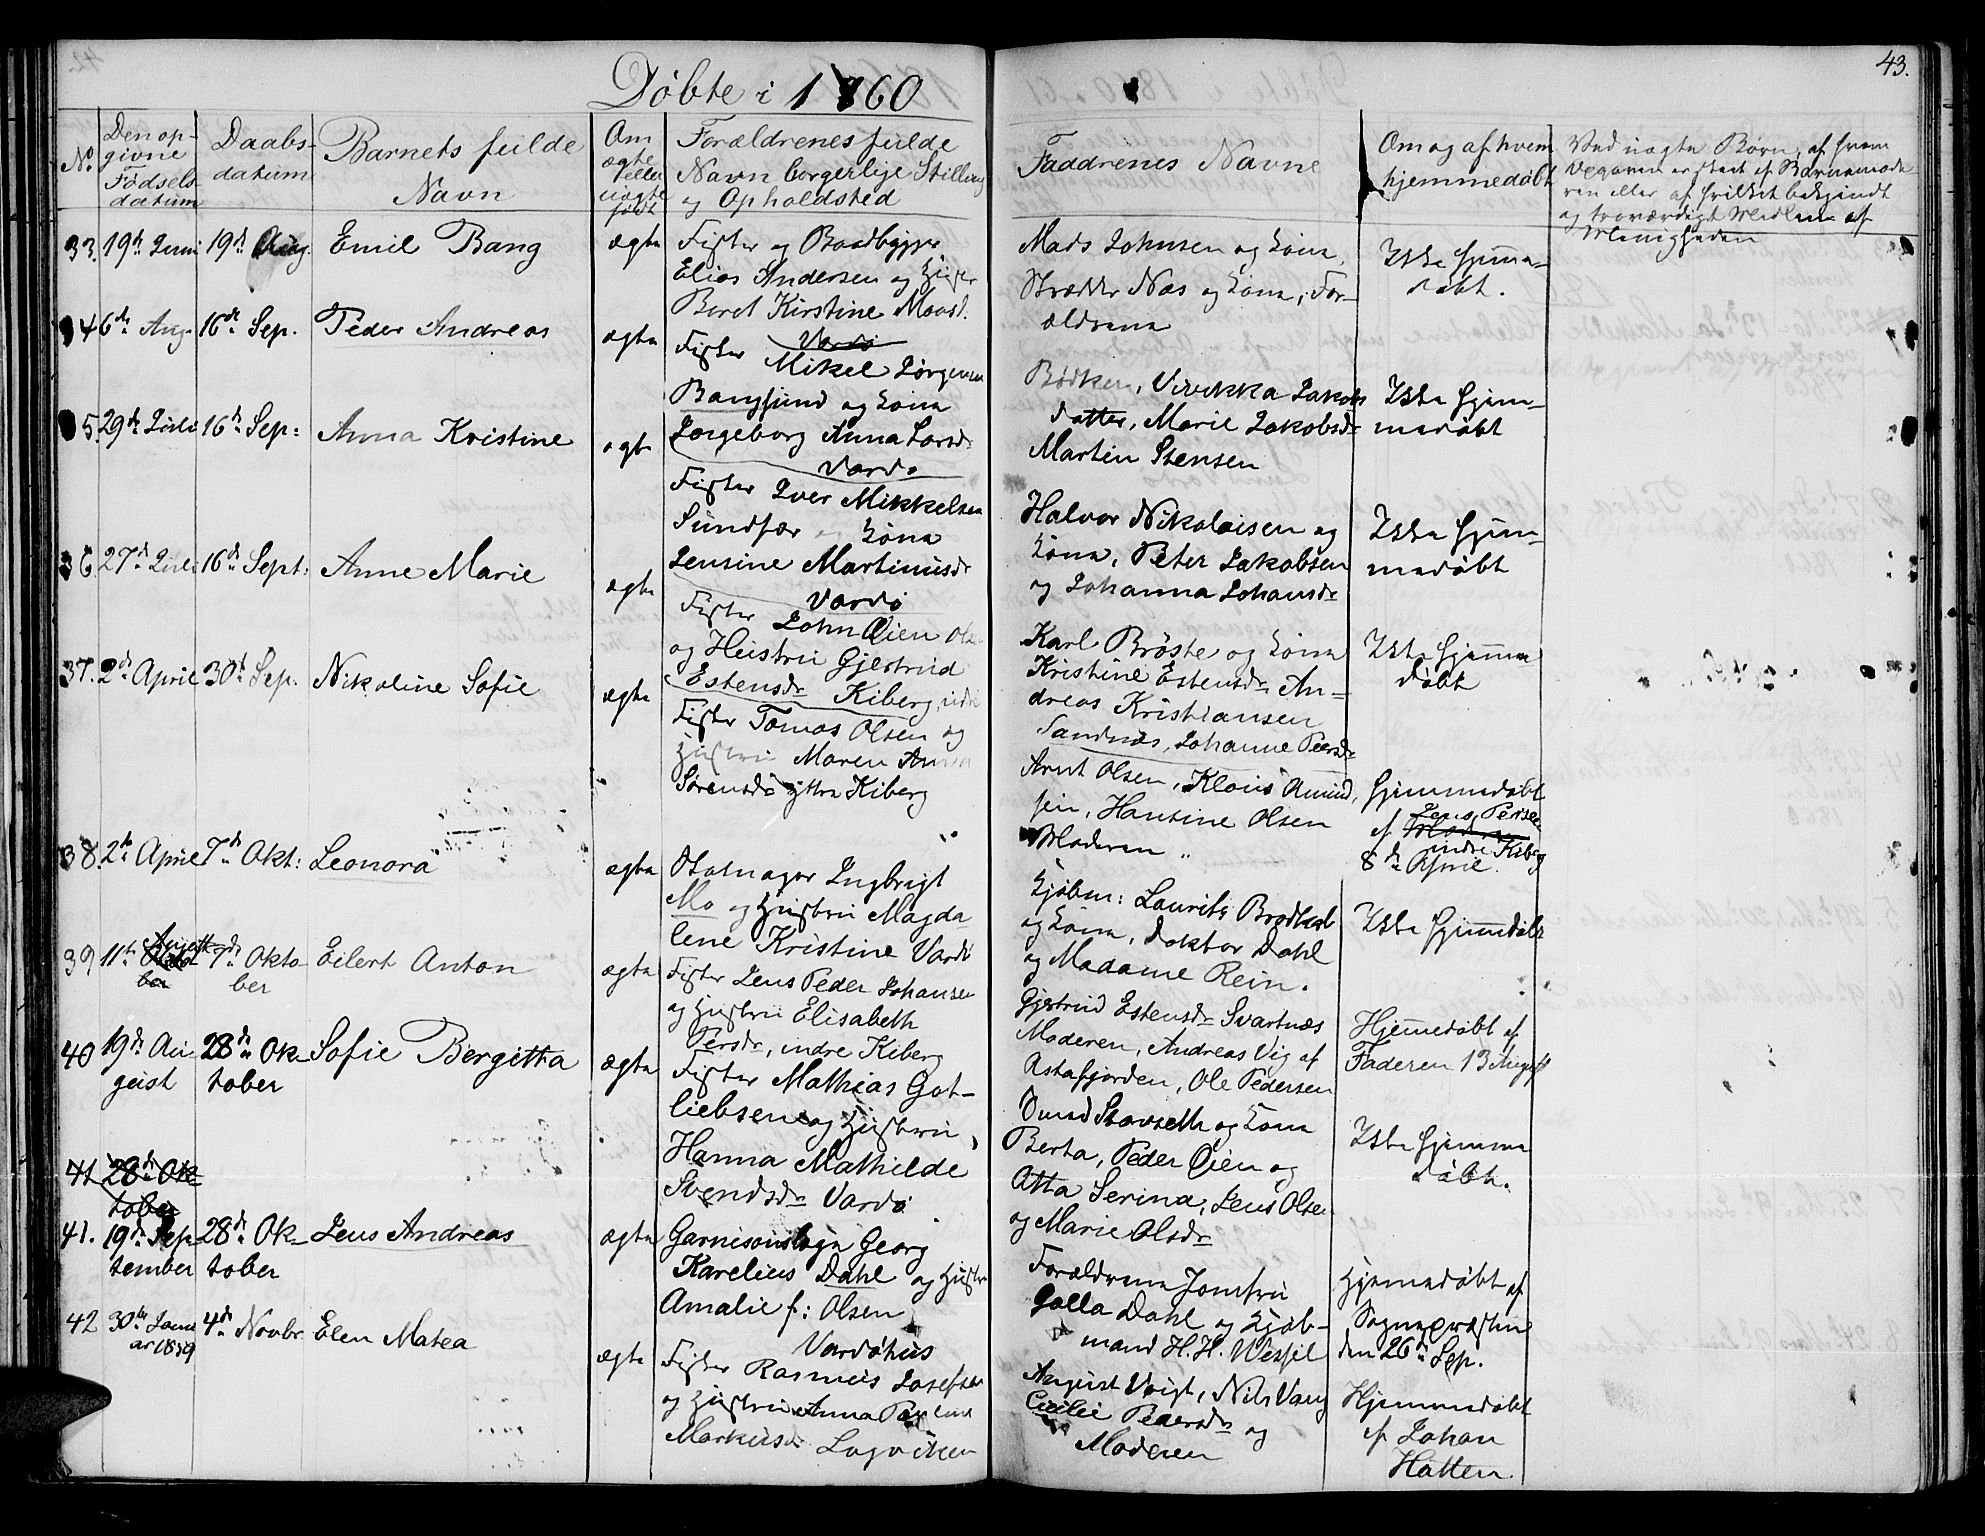 43.
Døbte i 1860
No.
Den op-
givne
Fødsels-
datum
Daabs-
datum
Barnets fulde
Navn
Om
ægte
eller
uægte
født
Forældrenes fulde
Navn borgerlige Stilling
og Opholdsted
Faddrenes Navne
Om og af hvem
hjemmedøbt
Ved uægte Børn, af hvem
Opgaven er skeet af Barnemode
ren eller af hvilket bekjendt
og troværdigt Medlem af
Menigheden
33. 19de Juni 19de Aug. Emil Bang ægte
Fisker og Baadbygger
Elias Andersen og
Beret Kirstine
Vardø
Mads Johnsen og Kone,
Næs og Kone, For-
ældrene
Ikke hjemme-
døbt.
34 6te Aug. 16de Sep. Peder Andreas ægte
Fisker Mikel Jørgensen
Bangsund og Kone
Ingeborg Anna Larsdr
Vardø
Bødker, Vivikka Jakobs
datter, Marie Jakobsdr
Martin Stensen
Ikke hjem-
medøbt
35 29de Juli 16de Sep: Anna Kristine ægte
Fisker Iver Mikkelsen
Sundfær og Kone
Jensine Martinusdr
Vardø
Halvor Nikolaisen og
Kone, Peter Jakobsen
og Johanna Johansdr
Ikke hjem-
medøbt
36 27de Juli 16de Sept: Anne Marie ægte
Fisker John Øien
og Hustru Gjertrud
Estensdr Kiberg, indre
Karl Brøste og Kone
Kristine Estensdr An-
dreas Kristiansen
Sandnæs, Johanne Peersdr
Ikke hjemme
døbt
37. 2de April 30te Sep. Nikoline Sofie ægte
Fisker Tomas Olsen og
Hustru Maren Anna
Sørensdr yttre Kiberg
Arnt Olsen, Klaus Amund,
sen, Hansine Olsen
Moderen
Hjemmedøbt
af Jens Persen
indre Kiberg
8de April.
38. 2de April 7de Okt: Leonora ægte
Ingbrigt
Mo og Hustru Magda
lene Kristine Vardø
Kjøbm: Laurits Brodtkorb
og Kone, Doktor Dahl
og Madame Rein.
Ikke hjemmedøbt
39 11te August 7de Okto
ber
Eilert Anton ægte
Fisker Jens Peder Johansen
og Hustru Elisabeth
Persdr, indre Kiberg
Gjertrud Estensdr Svartnæs
Moderen, Andreas Vig af
Astafjorden, Ole Pedersen
Hjemedøbt af
Faderen 13 August
40 19de Au
gust
28de Ok
tober
Sofie Bergitta ægte
Fisker Mathias Got-
liebsen og Hustru,
Hanna Mathilde
Svendsdr Vardø
Stavseth og Kone
Berta, Peder Øien og
Otta Serina, Jens Olsen
og Marie Olsdr
Ikke hjemme
døbt.
41 28de Ok
tober
41. 19de Sep
tember
28de Ok
tober
Jens Andreas ægte
Garnisonslæge Georg
Karelius Dahl og Hustru
Amalie f: Olsen
Vardøhus
Forældrene Jomfru
Galla Dahl og Kjøb-
mand H. H. Wessel
Hjemmedøbt af
Sognepræsten
den 26de Sep.
42 30te Janu
ar 1859
4de Novbr. Elen Matea ægte
Fisker Rasmus Josefsen
og Hustru Anna Pauline
Markusdr
August Voigt, Nils Vang
Cicilie Pedersdr og
Moderen
Hjemmedøbt
af Johan
Hatten.